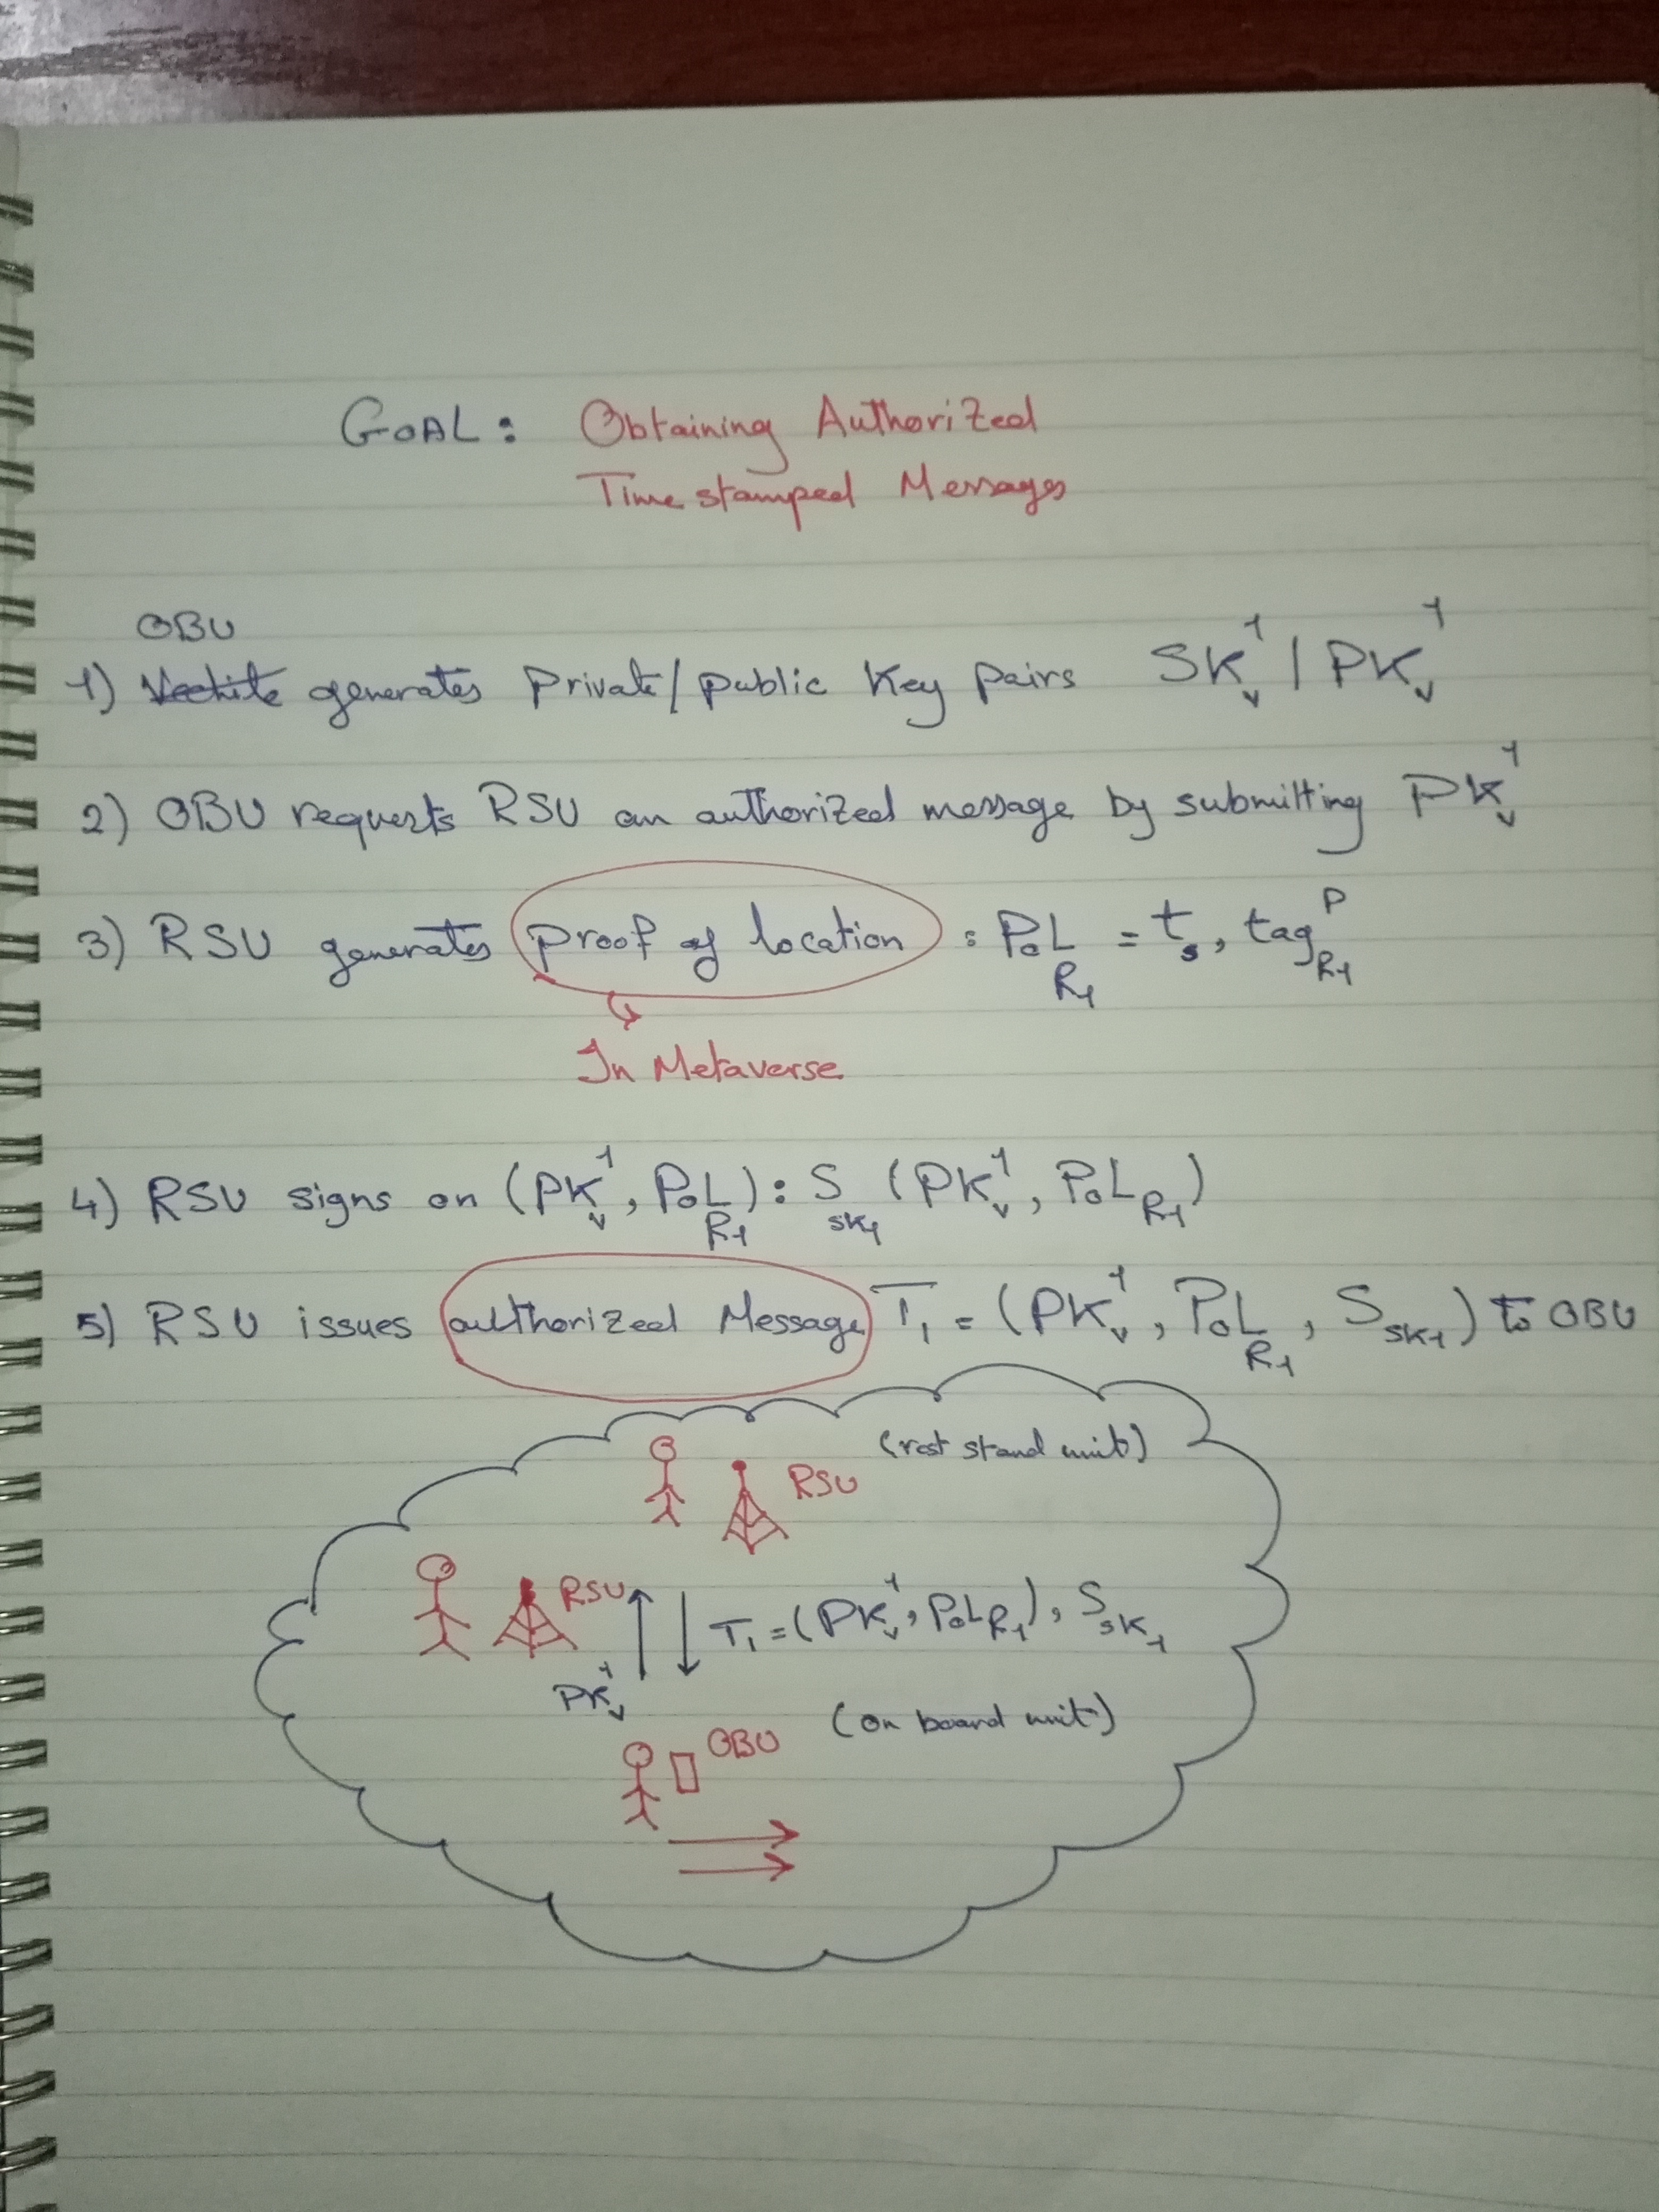 GOAL: Obtaining Authorized
Timestamped Messages
OBU
1) Vechile generates Private/public Key pairs SK_v^1 / PK_v^1
2) OBU requests RSU an authorized message by submitting PK_v^1
3) RSU generates proof of location : PoL_R1 = t_s, tag_R1^P
In Metaverse
4) RSU signs on (PK_v^1, PoL_R1): S_sk1 (PK_v^1, PoL_R1)
5) RSU issues authorized Message T_1 = (PK_v^1, PoL_R1, S_sk1) to OBU
(rost stand unit)
RSU
RSU
T_1 = (PK_v^1, PoL_R1), S_sk1
PK_v^1
(on board unit)
OBU